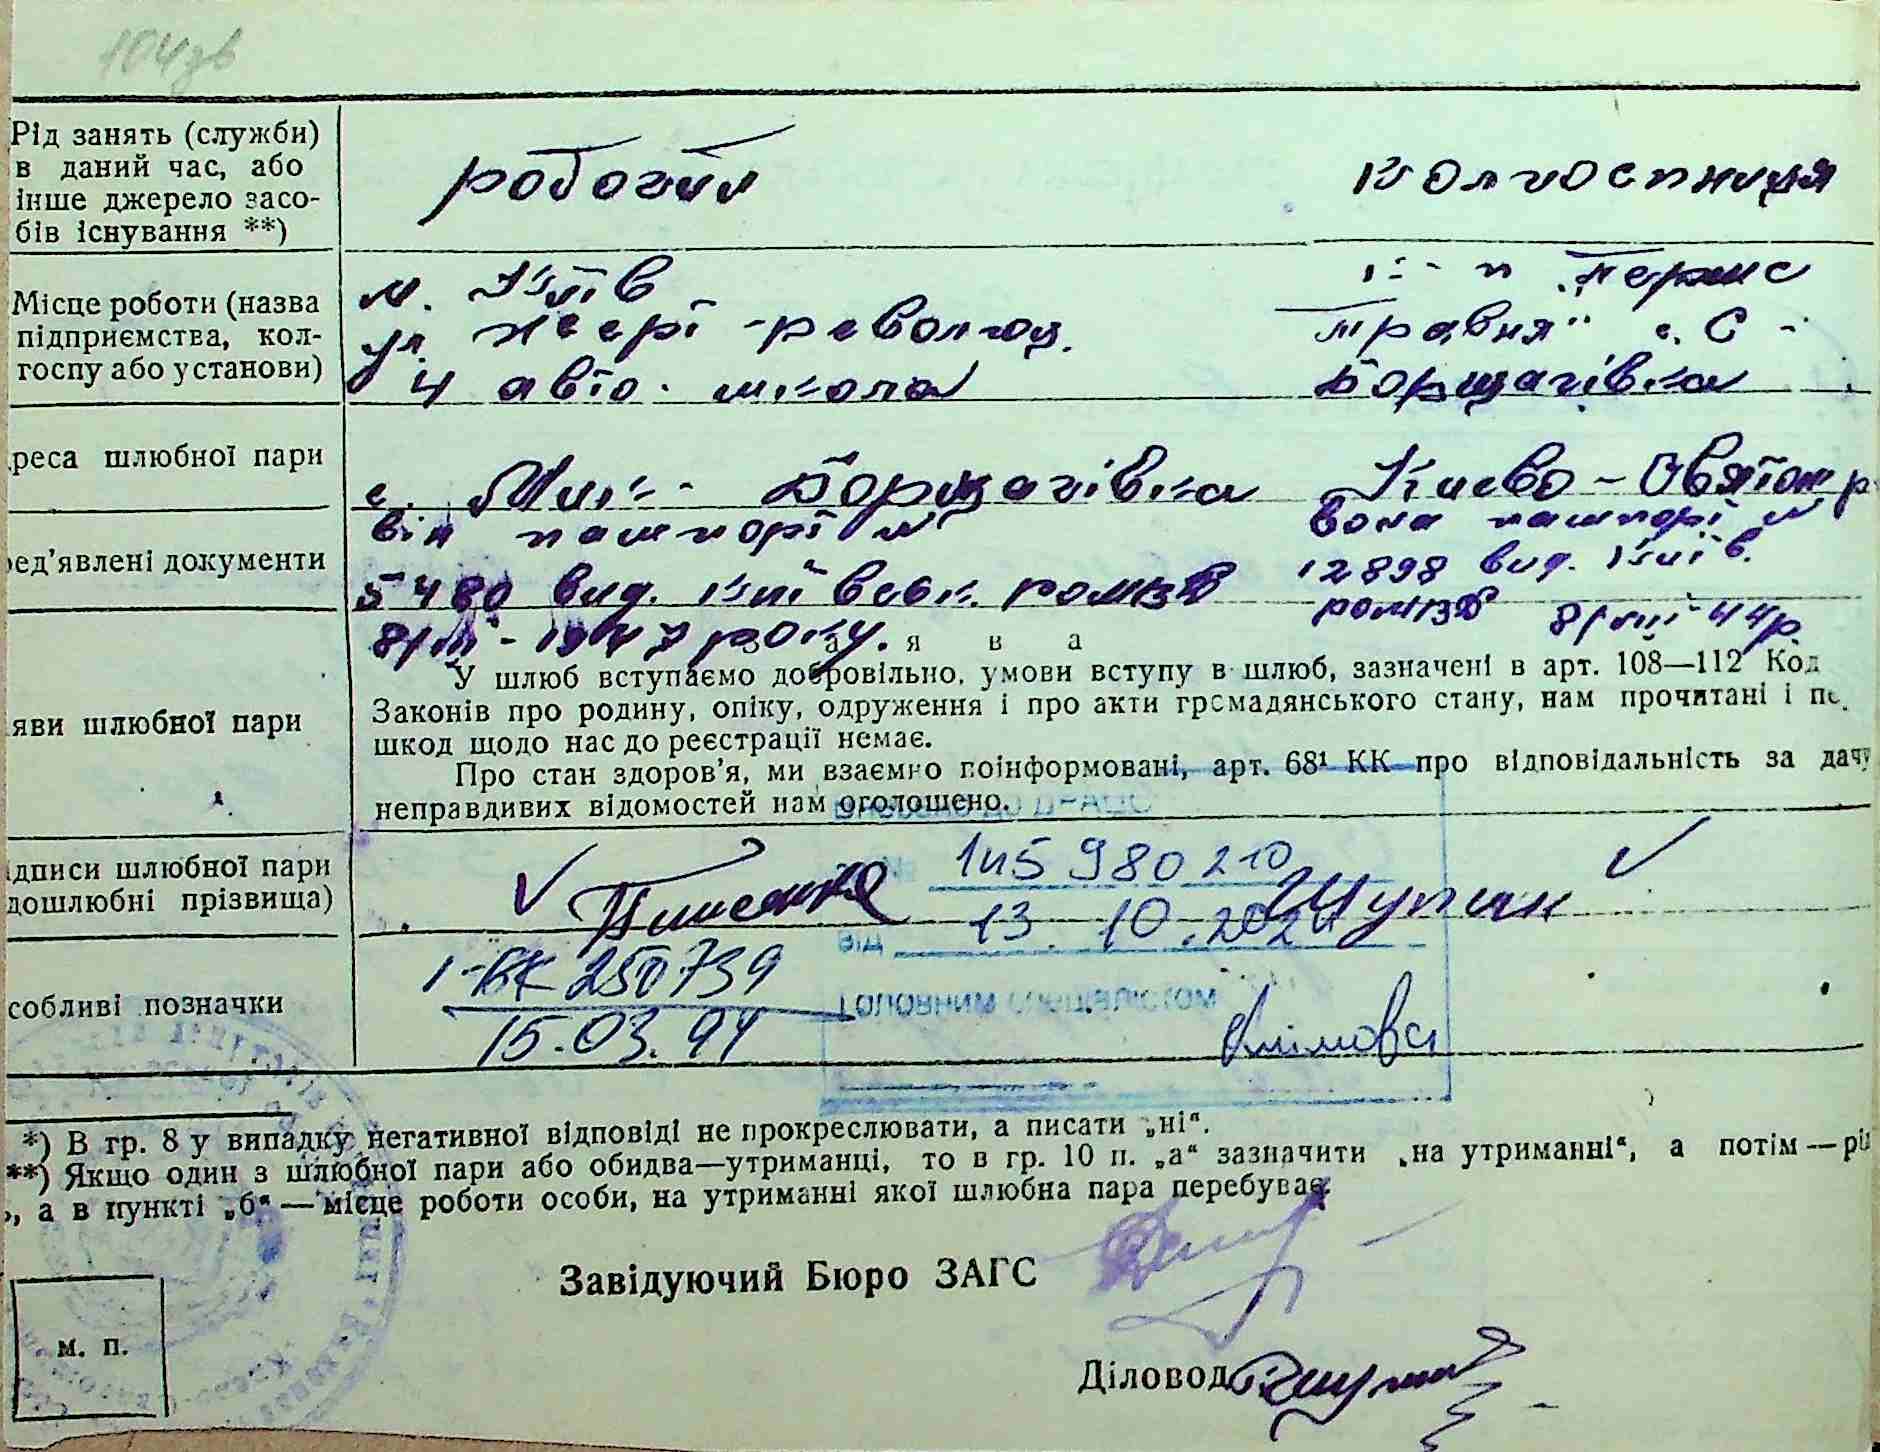 104зв
Рід занять (служби)
в даний час, або
інше джерело засо-
бів існування **)
робочий
колгоспниця
Місце роботи (назва
підприємства, кол-
госпу або установи)
м. Київ
ул. Жерт-революц.
4 авто. школа
к-п „Перше
травня" с. С -
Борщагівка
реса шлюбної пари
с. Мик- Борщагівка Києво - Святош р
ред'явлені документи
він пашпорт №
5480 вид. київськ. РОМВД
8/III - 1947 року.
вона пашпорт №
12898 вид. Київ.
РОМВД 8/VIII-44р.
з а я в а
яви шлюбної пари
У шлюб вступаємо добровільно, умови вступу в шлюб, зазначені в арт. 108—112 Код
Законів про родину, опіку, одруження і про акти громадянського стану, нам прочитані і пе
шкод щодо нас до реєстрації немає.
Про стан здоров'я, ми взаємно поінформовані, арт. 68¹ КК про відповідальність за дачу
неправдивих відомостей нам оголошено.
Внесено до ДРАЦС
ідписи шлюбної пари
дошлюбні прізвища)
145980210
Шупик
від 13.10.2024
собливі позначки
I-БК 250739
15.03.94
головним спеціалістом
Клімова
*) В гр. 8 у випадку негативної відповіді не прокреслювати, а писати „ні".
**) Якщо один з шлюбної пари або обидва—утриманці, то в гр. 10 п. „а" зазначити „на утриманні", а потім — рі
, а в пункті „б" — місце роботи особи, на утриманні якої шлюбна пара перебуває.
Завідуючий Бюро ЗАГС
м. п.
Діловод